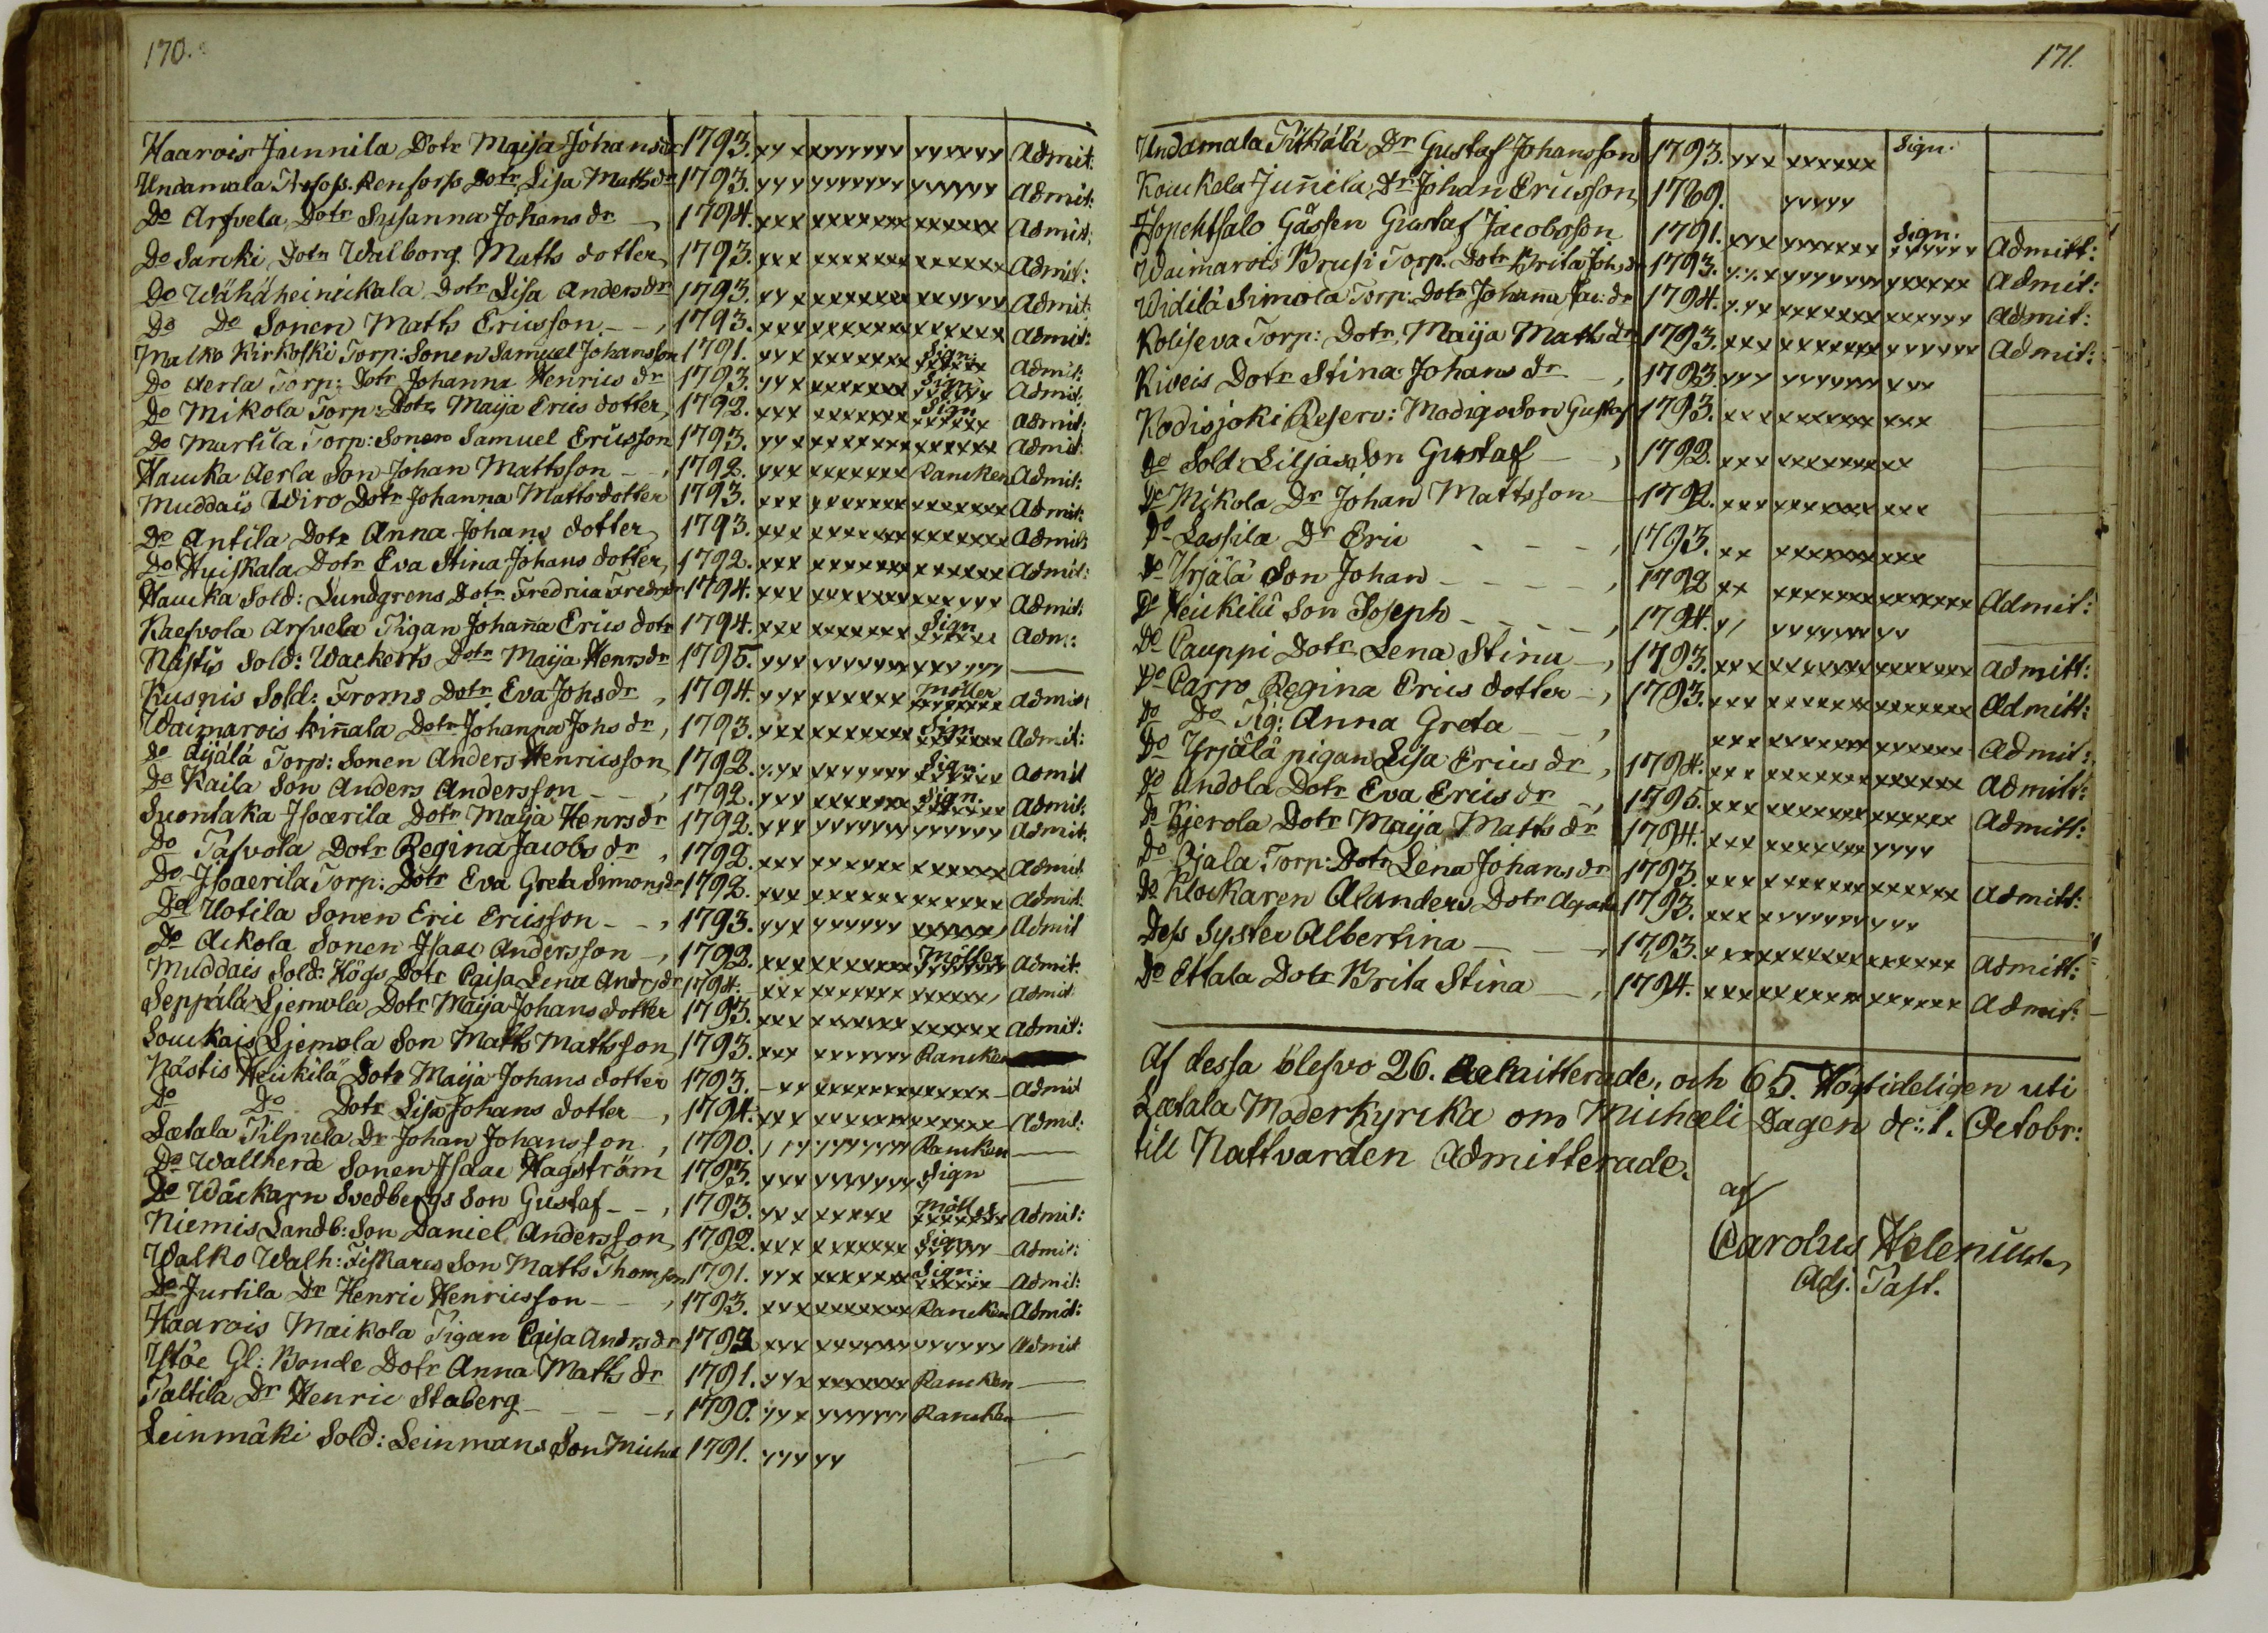 170.
Haarois Junnila Dotr Maija Johansdr 1793. xx x xxxxxxx xxxxxx Admit:
Undamala Dotr Lisa Mattsdr 1793. xxx xxxxxxxx xxxxxx Admit:
Do Arfvela Dotr Susanna Johans dr 1794. xxx xxxxxxxx xxxxxx Admit:
Do Sarcki Dotr Walborg Matts dotter 1793. xxx xxxxxxx xxxxxxx Admit:
Do Wähäheinickala Dotr Lisa Anders dr 1793. xxx xxxxxxxx xxxxxx Admit:
Do Do Sonen Matts Ericsson - - , 1793. xxx xxxxxxx xxxxxxx Admit:
Malko Kirkoski Torp: Sonen Samuel Johansson 1791. xxx xxxxxxx Sign. xxxxxx Admit:
Do Aerla Torp: Dotr Johanna Henrics dr 1793. xxx xxxxxxx Sign. xxxxxx Admit:
Do Mikola Torp: Dotr Maija Erics dotter 1792. xxx xxxxxxx Sign xxxxxx Admit:
Do Martila Torp: Sonen Samuel Ericsson 1793. xxx xxxxxxx xxxxxxx Admit:
Haucka Aerla Son Johan Mattsson - - , 1792. xxx xxxxxxx Rancken Admit:
Muddais Wiro Dotr Johanna Mattsdotter 1793. xxx xxxxxxx xxxxxxx Admit:
Do Antila Dotr Anna Johans dotter 1793. xxx xxxxxxx xxxxxxx Admit:
Do Huiskala Dotr Eva Stina Johans dotter, 1792. xxx xxxxxxx xxxxxx Admit:
Haucka Sold: Lundgrens Dotr Fredrica Fredrdr 1794. xxx xxxxxxx xxxxxx Admit:
Kaesvola Arfvela Pigan Johanna Erics dotr 1794. xxx xxxxxxx Sign xxxxxx Adm:
Nästis Sold: Wackerts Dotr Maija Henrsdr 1795. xxx xxxxxxx xxxxxx —
Kusnis Sold: Froms Dotr Eva Johsdr , 1794. xxx xxxxxx Möller xxxxxxx Admit:
Waimarois Kiñala Dotr Johanna Johs dr , 1793. xxx xxxxxxx Sign xxxxxx Admit:
Do Äijälä Torp: Sonen Anders Henricsson 1792. xxx xxxxxxx Sign. xxxxxx Admit
Do Kaila Son Anders Andersson - - , 1792. xxx xxxxxxx Sign. xxxxxx Admit:
Suontaka Isocerila Dotr Maija Henrsdr 1792. xxx xxxxxxx xxxxxxx Admit.
Do Pasvola Dotr Regina Jacobs dr , 1792. xxx xxxxxxx xxxxxx Admit
Do Isoaerila Torp: Dotr Eva Greta Simonsdr 1792. xxx xxxxxxx xxxxxx Admit.
Do Uotila Sonen Eric Ericsson - - , 1793. xxx xxxxxxx xxxxxx Admit
Do Ackola Sonen Isaac Andersson - , 1792. xxx xxxxxxx Möller xxxxxxx Admit.
Muddais Sold: Högs Dotr Caisa Lena Andrsdr 1794. xxx xxxxxxx xxxxxx, Admit
Seppälä Ljemola Dotr Maija Johans dotter 1793. xxx xxxxxxx xxxxxx Admit:
Souckais Ljemola Son Matts Mattsson 1793. xxx xxxxxxx Rancken
Nästis Heickilä Dotr Maija Johans dotter 1793. - xx xxxxxxx xxxxxx Admit
Do Do Dotr Lisa Johans dotter - , 1794. xxx xxxxxxx xxxxxx Admit:
Lætala Pilpula Dr Johan Johansson , 1790. xxx xxxxxxx Rancken —
Do Wallherde Sonen Isaac Hagström 1793. xxx xxxxxxx Sign —
Do Wäckarn Svedbergs Son Gustaf - - , 1793. xxx xxxxx Möller xxxxxxx Admit:
Niemis Landb: Son Daniel Andersson 1792. xxx xxxxxxx Sign. xxxxx Admit:
Walko Walh: Fiskares Son Matts Thomsson 1791. xxx xxxxxxx Sign. xxxxxx Admit:
Do Jurtila Dr Henric Henricsson - - , 1793. xxx xxxxxxx Rancken Admit:
Haarois Maikola Pigan Caisa Andrsdr 1793 xxx xxxxxxx xxxxxxx Admit
Ystöe Gl: Bonde Dotr Anna Matts dr 1791. xxx xxxxxxx Rancken —
Paltila Dr Henric Staberg - - - , 1790. xxx xxxxxxx Rancken —
Leinmäki Sold: Leinmans Son Michel 1791. xxx xx —
171.
Undamala Pitkälä Dr Gustaf Johansson 1793. xxx xxxxxx Sign. —
Kouckela Juñila Dr Johan Ericsson 1789. xxxxx —
Gåssen Gustaf Jacobsson 1791. xxx xxxxxxx Sign: xxxxxx Admitt:
Waimarois Brusi Torp. Dotr Brita Joh. dr 1793. xxx xxxxxxx xxxxxx Admit:
Widilä Simola Torp: Dotr Johanna Jac: dr 1794. xxx xxxxxxx xxxxxx Admit:
Koliseva Torp: Dotr Maija Matts dr 1793. xxx xxxxxxx xxxxxx Admit:
Kiveis Dotr Stina Johans dr - , 1793. xxx xxxxxxx xxx —
Kodisjoki Reserv: Modigs Son Gustaf 1793. xxx xxxxxxx xxx —
Do Sold: Liljas Son Gustaf - , 1792. xxx xxxxxxx xx —
Do Mikola Dr Johan Mattsson - 1792. xxx xxxxxxx xxx —
Do Lassila Dr Eric - - - , 1793. xx xxxxxxx xxx —
Do Yrjälä Son Johan - - - , 1792 xx xxxxxxx xxxxxxx Admit:
Do Heickilä Son Joseph - - - , 1794. x/ xxxxxxx xx —
Do Cauppi Dotr Lena Stina - , 1793. xxx xxxxxxx xxxxxxx Admitt:
Do Carro Regina Erics dotter - , 1793. xxx xxxxxxx xxxxxxx Admitt:
Do Do Pig: Anna Greta - - , xxx xxxxxxx xxxxxx Admit:
Do Yrjälä pigan Lisa Erics dr , 1794. xxx xxxxxxx xxxxxx Admitt:
Do Andola Dotr Eva Erics dr - , 1795. xxx xxxxxxx xxxxxx Admitt:
Do Kjerola Dotr Maija Matts dr 1794. xxx xxxxxxx xxxx —
Do Ojala Torp: Dotr Lena Johans dr 1793. xxx xxxxxxx xxxxxx Admitt:
Do Klockaren Alanders Dotr Agata 1793. xxx xxxxxxx xxx —
Dess Syster Albertina - - , 1793. xxx xxxxxxx xxxxxx Admitt:
Do Ettala Dotr Brita Stina - , 1794. xxx xxxxxxx xxxxxx Admit:
Af dessa blefvo 26. admitterade, och 65. Högtideligen uti
Lætala Moderkyrcka om Michæli Dagen d: 1. Octobr:
till Nattvarden Admitterade.
af
Carolus Helenius
Adj. Past.